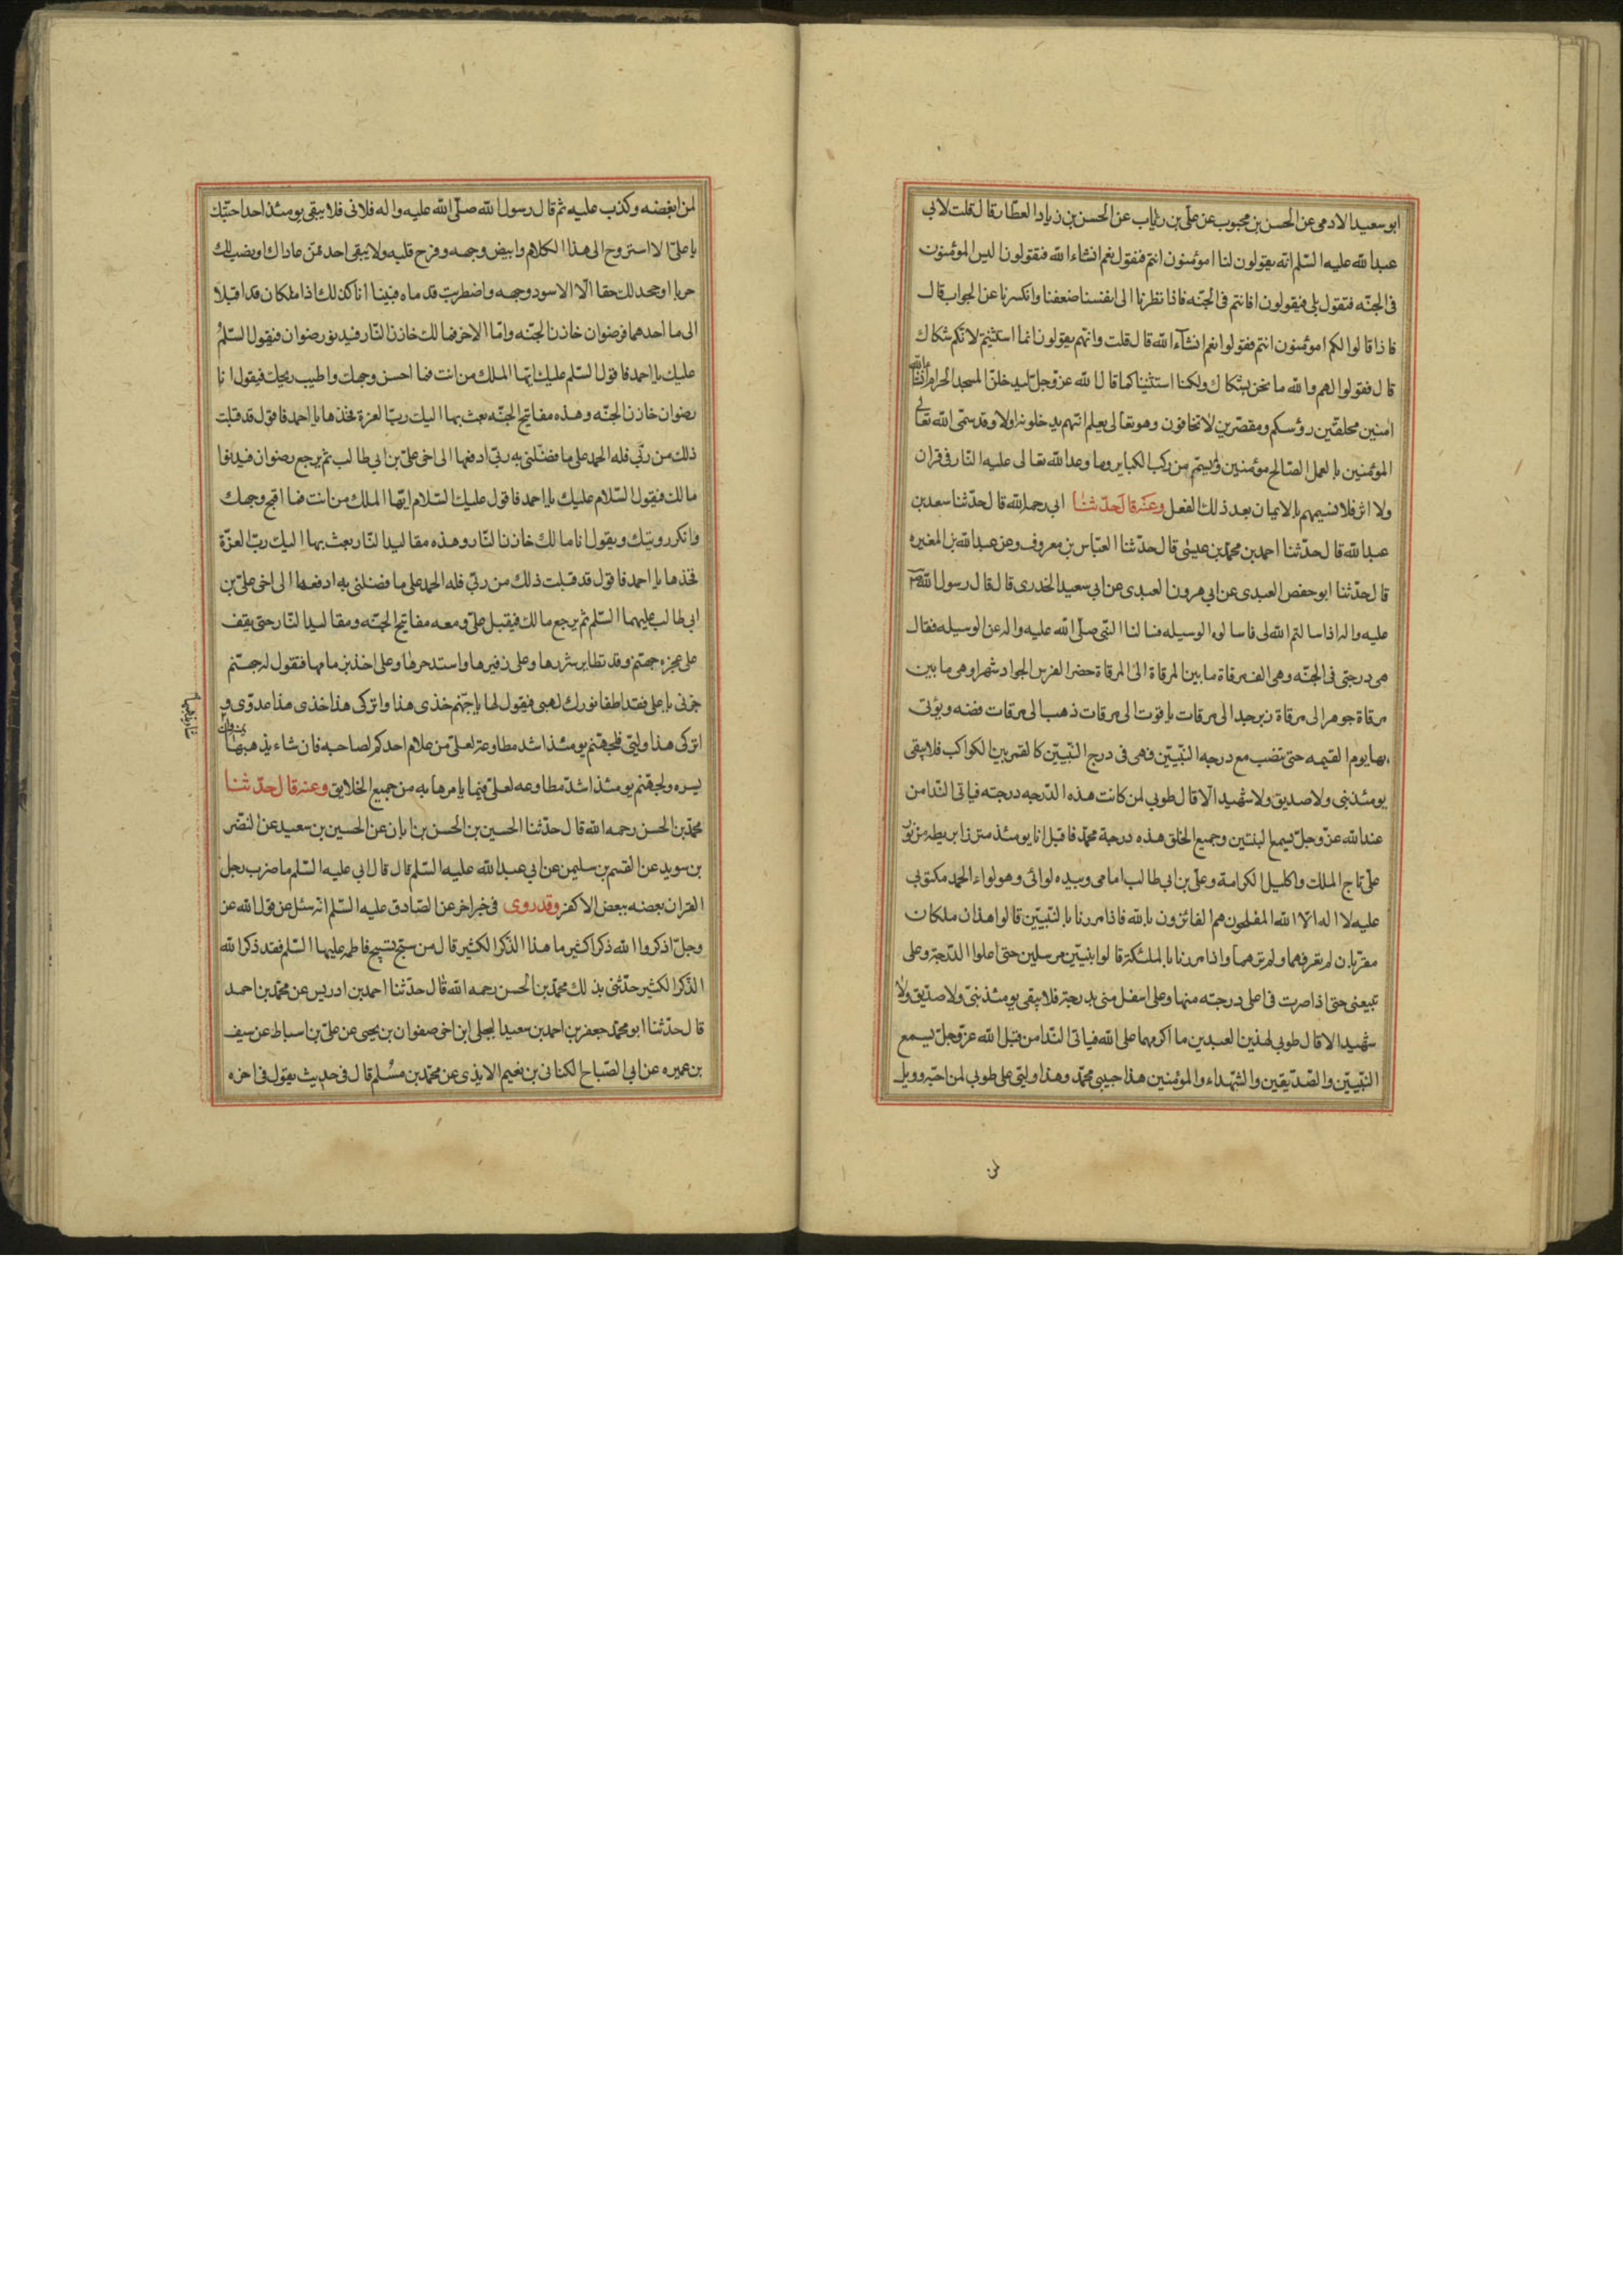 ابو سعيد الادمى عن الحسن بن محبوب عن على بن رئاب عن الحسن بن زياد العطار قال قلت لابى
عبد الله عليه السلم انه يقولون لنا امؤمنون انتم فنقول نعم انشاء الله فيقولون اليس المؤمنون
فى الجنه فنقول بلى فيقولون افانتم فى الجنه فاذا نظرنا الى انفسنا ضعفنا وانكسرنا عن الجواب قال
فاذا قالوا لكم امؤمنون انتم فقولوا نعم انشاء الله قال قلت وانهم يقولون انما استثنيتم لانكم شكاك
قال فقولوا لهم والله ما نحن بشكاك ولكنا استثنينا كما قال الله عز وجل لتدخلن المسجد الحرام انشاء الله
امنين محلقين رؤسكم ومقصرين لا تخافون وهو تعالى يعلم انهم يدخلونه اولا وقد سمى الله تعالى
المؤمنين بالعمل الصالح مؤمنين ولم يسم من ركب الكباير وما وعد الله تعالى عليه النار فى قران
ولا اثر فلا نسميهم بالايمان بعد ذلك الفعل وعنه قال حدثنا ابى رحمه الله قال حدثنا سعد بن
عبد الله قال حدثنا احمد بن محمد بن عيسى قال حدثنا العباس بن معروف وعن عبد الله بن المغيره
قال حدثنا ابو حفص العبدى عن ابى هرون العبدى عن ابى سعيد الخدرى قال قال رسول الله صلى الله
عليه واله اذا سالتم الله لى فاسالوه الوسيله فسالنا النبى صلى الله عليه واله عن الوسيله فقال
هى درجتى فى الجنه وهى الف مرقاة ما بين المرقاة الى المرقاة حضر الفرس الجواد شهرا وهى ما بين
مرقاة جوهر الى مرقاة زبرجد الى مرقات ياقوت الى مرقات ذهب الى مرقات فضه ويؤتى
بها يوم القيمه حتى تنصب مع درجه النبيين فهى فى درج النبيين كالقمر بين الكواكب فلا يبقى
يومئذ نبى ولا صديق ولا شهيد الا قال طوبى لمن كانت هذه الدرجه درجته فياتى الندا من
عند الله عز وجل يسمع النبيين وجميع الخلق هذه درجة محمد فاقبل انا يومئذ متزرا بريطه من نور
على تاج الملك واكليل الكرامة وعلى بن ابى طالب امامى وبيده لوائى وهو لواء الحمد مكتوب
عليه لا اله الا الله المفلحون هم الفائزون بالله فاذا مررنا بالنبيين قالوا هذان ملكان
مقربان لم نعرفهما ولم نرهما واذا مررنا بالملئكة قالوا نبيين مرسلين حتى اعلوا الدرجة وعلى
يتبعنى حتى اذا صرت فى اعلى درجته منها وعلى اسفل منى بدرجة فلا يبقى يومئذ نبى ولا صديق ولا
شهيد الا قال طوبى لهذين العبدين ما اكرمهما على الله فياتى الندا من قبل الله عز وجل يسمع
النبيين والصديقين والشهداء والمؤمنين هذا حبيبى محمد وهذا وليى على طوبى لمن احبه وويل
لمن
لمن ابغضه وكذب عليه ثم قال رسول الله صلى الله عليه واله فلا يبقى يومئذ احد احبك
يا على الا استروح الى هذا الكلام وابيض وجهه وفرح قلبه ولا يبقى احد ممن عاداك ونصب لك
حربا او جحد لك حقا الا اسود وجهه واضطربت قدماه فبينا انا كذلك اذا ملكان قد اقبلا
الى ما احدهما فرضوان خازن الجنه واما الاخر فمالك خازن النار فيدنو رضوان فيقول السلم
عليك يا احمد فاقول السلم عليك ايها الملك من انت فما احسن وجهك واطيب ريحك فيقول انا
رضوان خازن الجنه وهذه مفاتيح الجنه بعث بها اليك رب العزة فخذها يا احمد فاقول قد قبلت
ذلك من ربى فله الحمد على ما فضلنى به ربى ادفعها الى اخى على بن ابى طالب ثم يرجع رضوان فيدنوا
مالك فيقول السلام عليك يا احمد فاقول عليك السلام ايها الملك من انت فما اقبح وجهك
وانكر رويتك ويقول انا مالك خازن النار وهذه مقاليد النار بعث بها اليك رب العزة
فخذها يا احمد فاقول قد قبلت ذلك من ربى فله الحمد على ما فضلنى به ادفعها الى اخى على بن
ابى طالب عليهما السلم ثم يرجع مالك فيقبل على ومعه مفاتيح الجنه ومقاليد النار حتى يقف
على عجزه جهنم وقد تطاير شررها وعلى زفيرها واشتد حرها وعلى اخذ بزمامها فتقول له جهنم
جزنى يا على فقد اطفا نورك لهبى فيقول لها يا جهنم خذى هذا واتركى هذا خذى هذا عدوى و
اتركى هذا وليى فلجهنم يومئذ اشد مطاوعة لعلى من غلام احدكم لصاحبه فان شاء يذهبها
يسره ولجهنم يومئذ اشد مطاوعه لعلى فيما يامرها به من جميع الخلايق وعنه قال حدثنا
محمد بن الحسن رحمه الله قال حدثنا الحسين بن الحسن بن ابان عن الحسين بن سعيد عن النضر
بن سويد عن القسم بن سليمن عن ابى عبد الله عليه السلم قال قال ابى عليه السلم ما ضرب رجل
القران بعضه ببعض الا كفر وقد روى فى خبر اخر عن الصادق عليه السلم انه سئل عن قول الله عز
وجل اذكروا الله ذكرا كثيرا ما هذا الذكر الكثير قال من سبح تسبيح فاطمه عليها السلم فقد ذكر الله
الذكر الكثير حدثنى بذلك محمد بن الحسن رحمه الله قال حدثنا احمد بن ادريس عن محمد بن احمد
قال حدثنا ابو محمد جعفر بن احمد بن سعيد البجلى ابن اخى صفوان بن يحيى عن على بن اسباط عن سيف
بن عميره عن ابى الصباح الكنانى بن نعيم الابذى عن محمد بن مسلم قال فى حديث يقول فى اخره